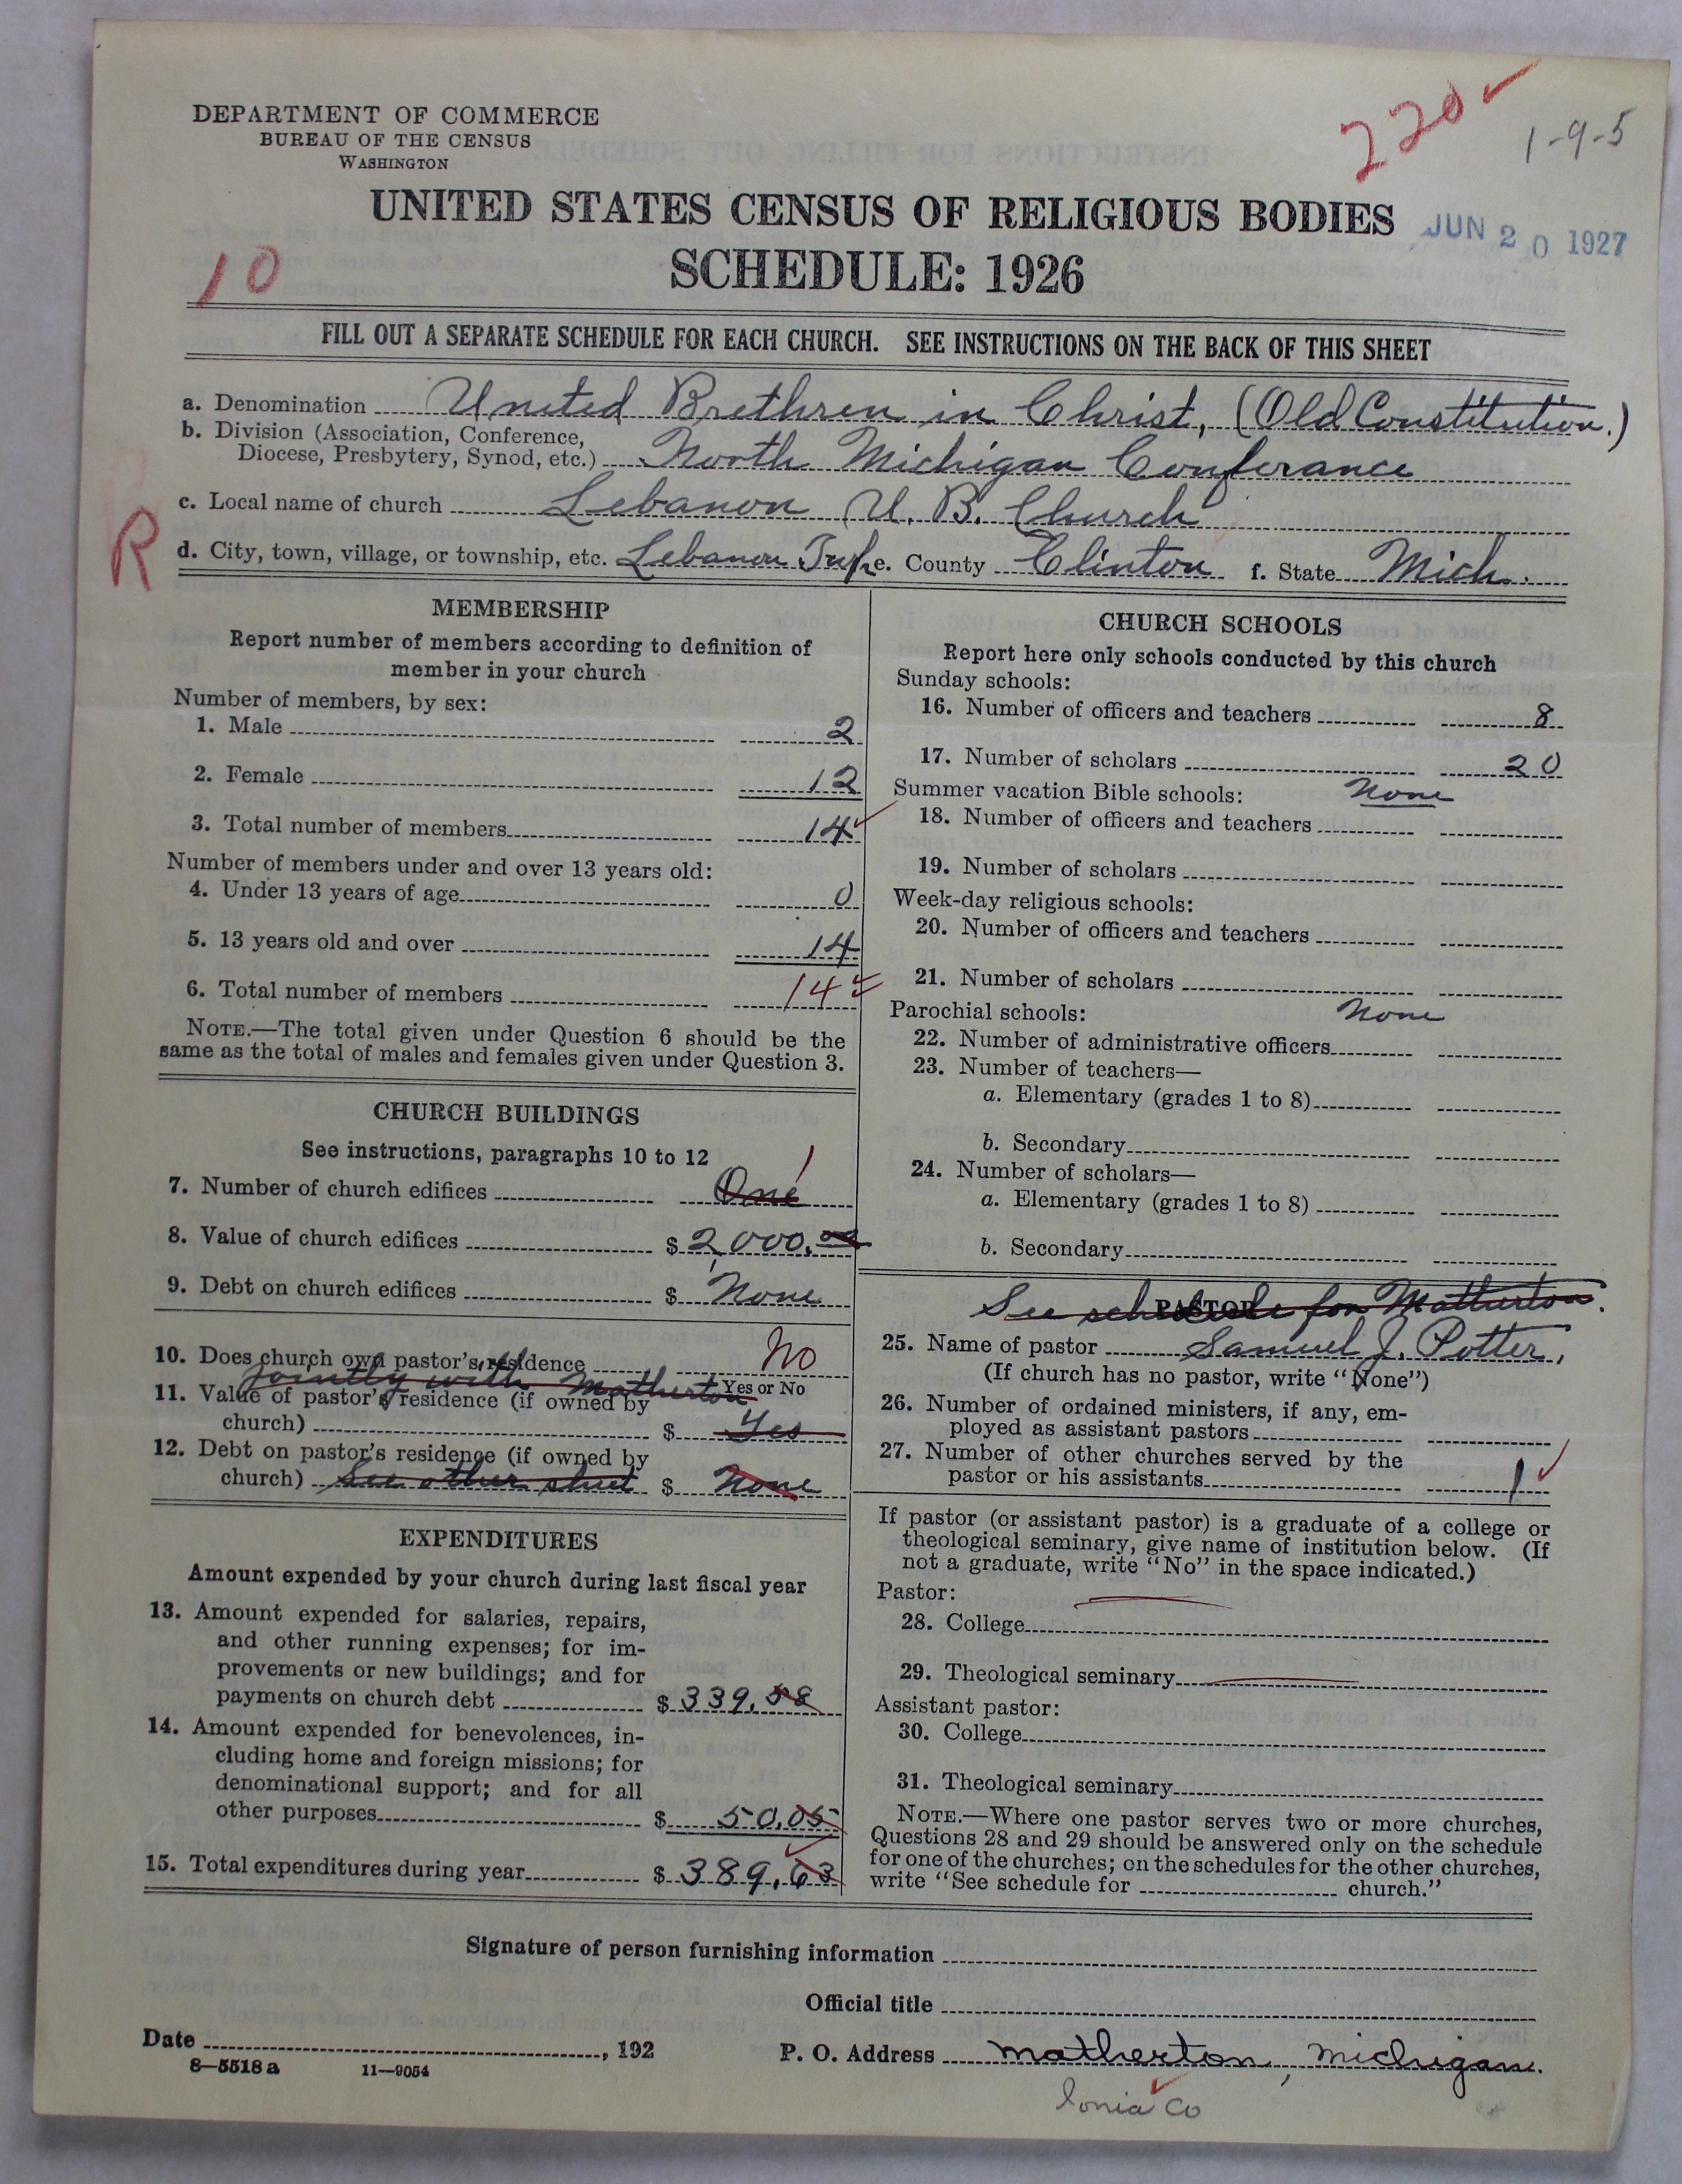 220
1-9-5
DEPARTMENT OF COMMERCE
BUREAU OF THE CENSUS
WASHINGTON
UNITED STATES CENSUS OF RELIGIOUS BODIES
JUN 20 1927
SCHEDULE: 1926
10
FILL OUT A SEPARATE SCHEDULE FOR EACH CHURCH. SEE INSTRUCTIONS ON THE BACK OF THIS SHEET
a. Denomination United Brethren in Christ, (Old Constitution.)
b. Division (Association, Conference,
Diocese, Presbytery, Synod, etc.) North Michigan Conferance
c. Local name of church Lebanon U. B. Church
R
d. City, town, village, or township, etc. Lebanon Twp. e. County Clinton f. State Mich.
MEMBERSHIP
Report number of members according to definition of
member in your church
Number of members, by sex:
1. Male 2
2. Female 12
3. Total number of members 14
Number of members under and over 13 years old:
4. Under 13 years of age 0
5. 13 years old and over 14
6. Total number of members 14
NOTE.—The total given under Question 6 should be the
same as the total of males and females given under Question 3.
CHURCH BUILDINGS
See instructions, paragraphs 10 to 12
1
7. Number of church edifices One
8. Value of church edifices $ 2,000.00
9. Debt on church edifices $ None
10. Does church own pastor's residence No
Yes or No
Jointly with Matherton
11. Value of pastor's residence (if owned by
church) $ Yes
12. Debt on pastor's residence (if owned by
church) See other sheet $ None
EXPENDITURES
Amount expended by your church during last fiscal year
13. Amount expended for salaries, repairs,
and other running expenses; for im-
provements or new buildings; and for
payments on church debt $ 339.58
14. Amount expended for benevolences, in-
cluding home and foreign missions; for
denominational support; and for all
other purposes $ 50.05
15. Total expenditures during year $ 389.63
CHURCH SCHOOLS
Report here only schools conducted by this church
Sunday schools:
16. Number of officers and teachers 8
17. Number of scholars 20
Summer vacation Bible schools: None
18. Number of officers and teachers
19. Number of scholars
Week-day religious schools:
20. Number of officers and teachers
21. Number of scholars
Parochial schools: None
22. Number of administrative officers
23. Number of teachers—
a. Elementary (grades 1 to 8)
b. Secondary
24. Number of scholars—
a. Elementary (grades 1 to 8)
b. Secondary
PASTOR
See schedule for Matherton.
25. Name of pastor Samuel J. Potter,
(If church has no pastor, write "None")
26. Number of ordained ministers, if any, em-
ployed as assistant pastors
27. Number of other churches served by the
pastor or his assistants 1
If pastor (or assistant pastor) is a graduate of a college or
theological seminary, give name of institution below. (If
not a graduate, write "No" in the space indicated.)
Pastor:
28. College
29. Theological seminary
Assistant pastor:
30. College
31. Theological seminary
NOTE.—Where one pastor serves two or more churches,
Questions 28 and 29 should be answered only on the schedule
for one of the churches; on the schedules for the other churches,
write "See schedule for church."
Signature of person furnishing information
Official title
Date , 192
P. O. Address Matherton, Michigan.
8—5518a 11—9054
Ionia Co